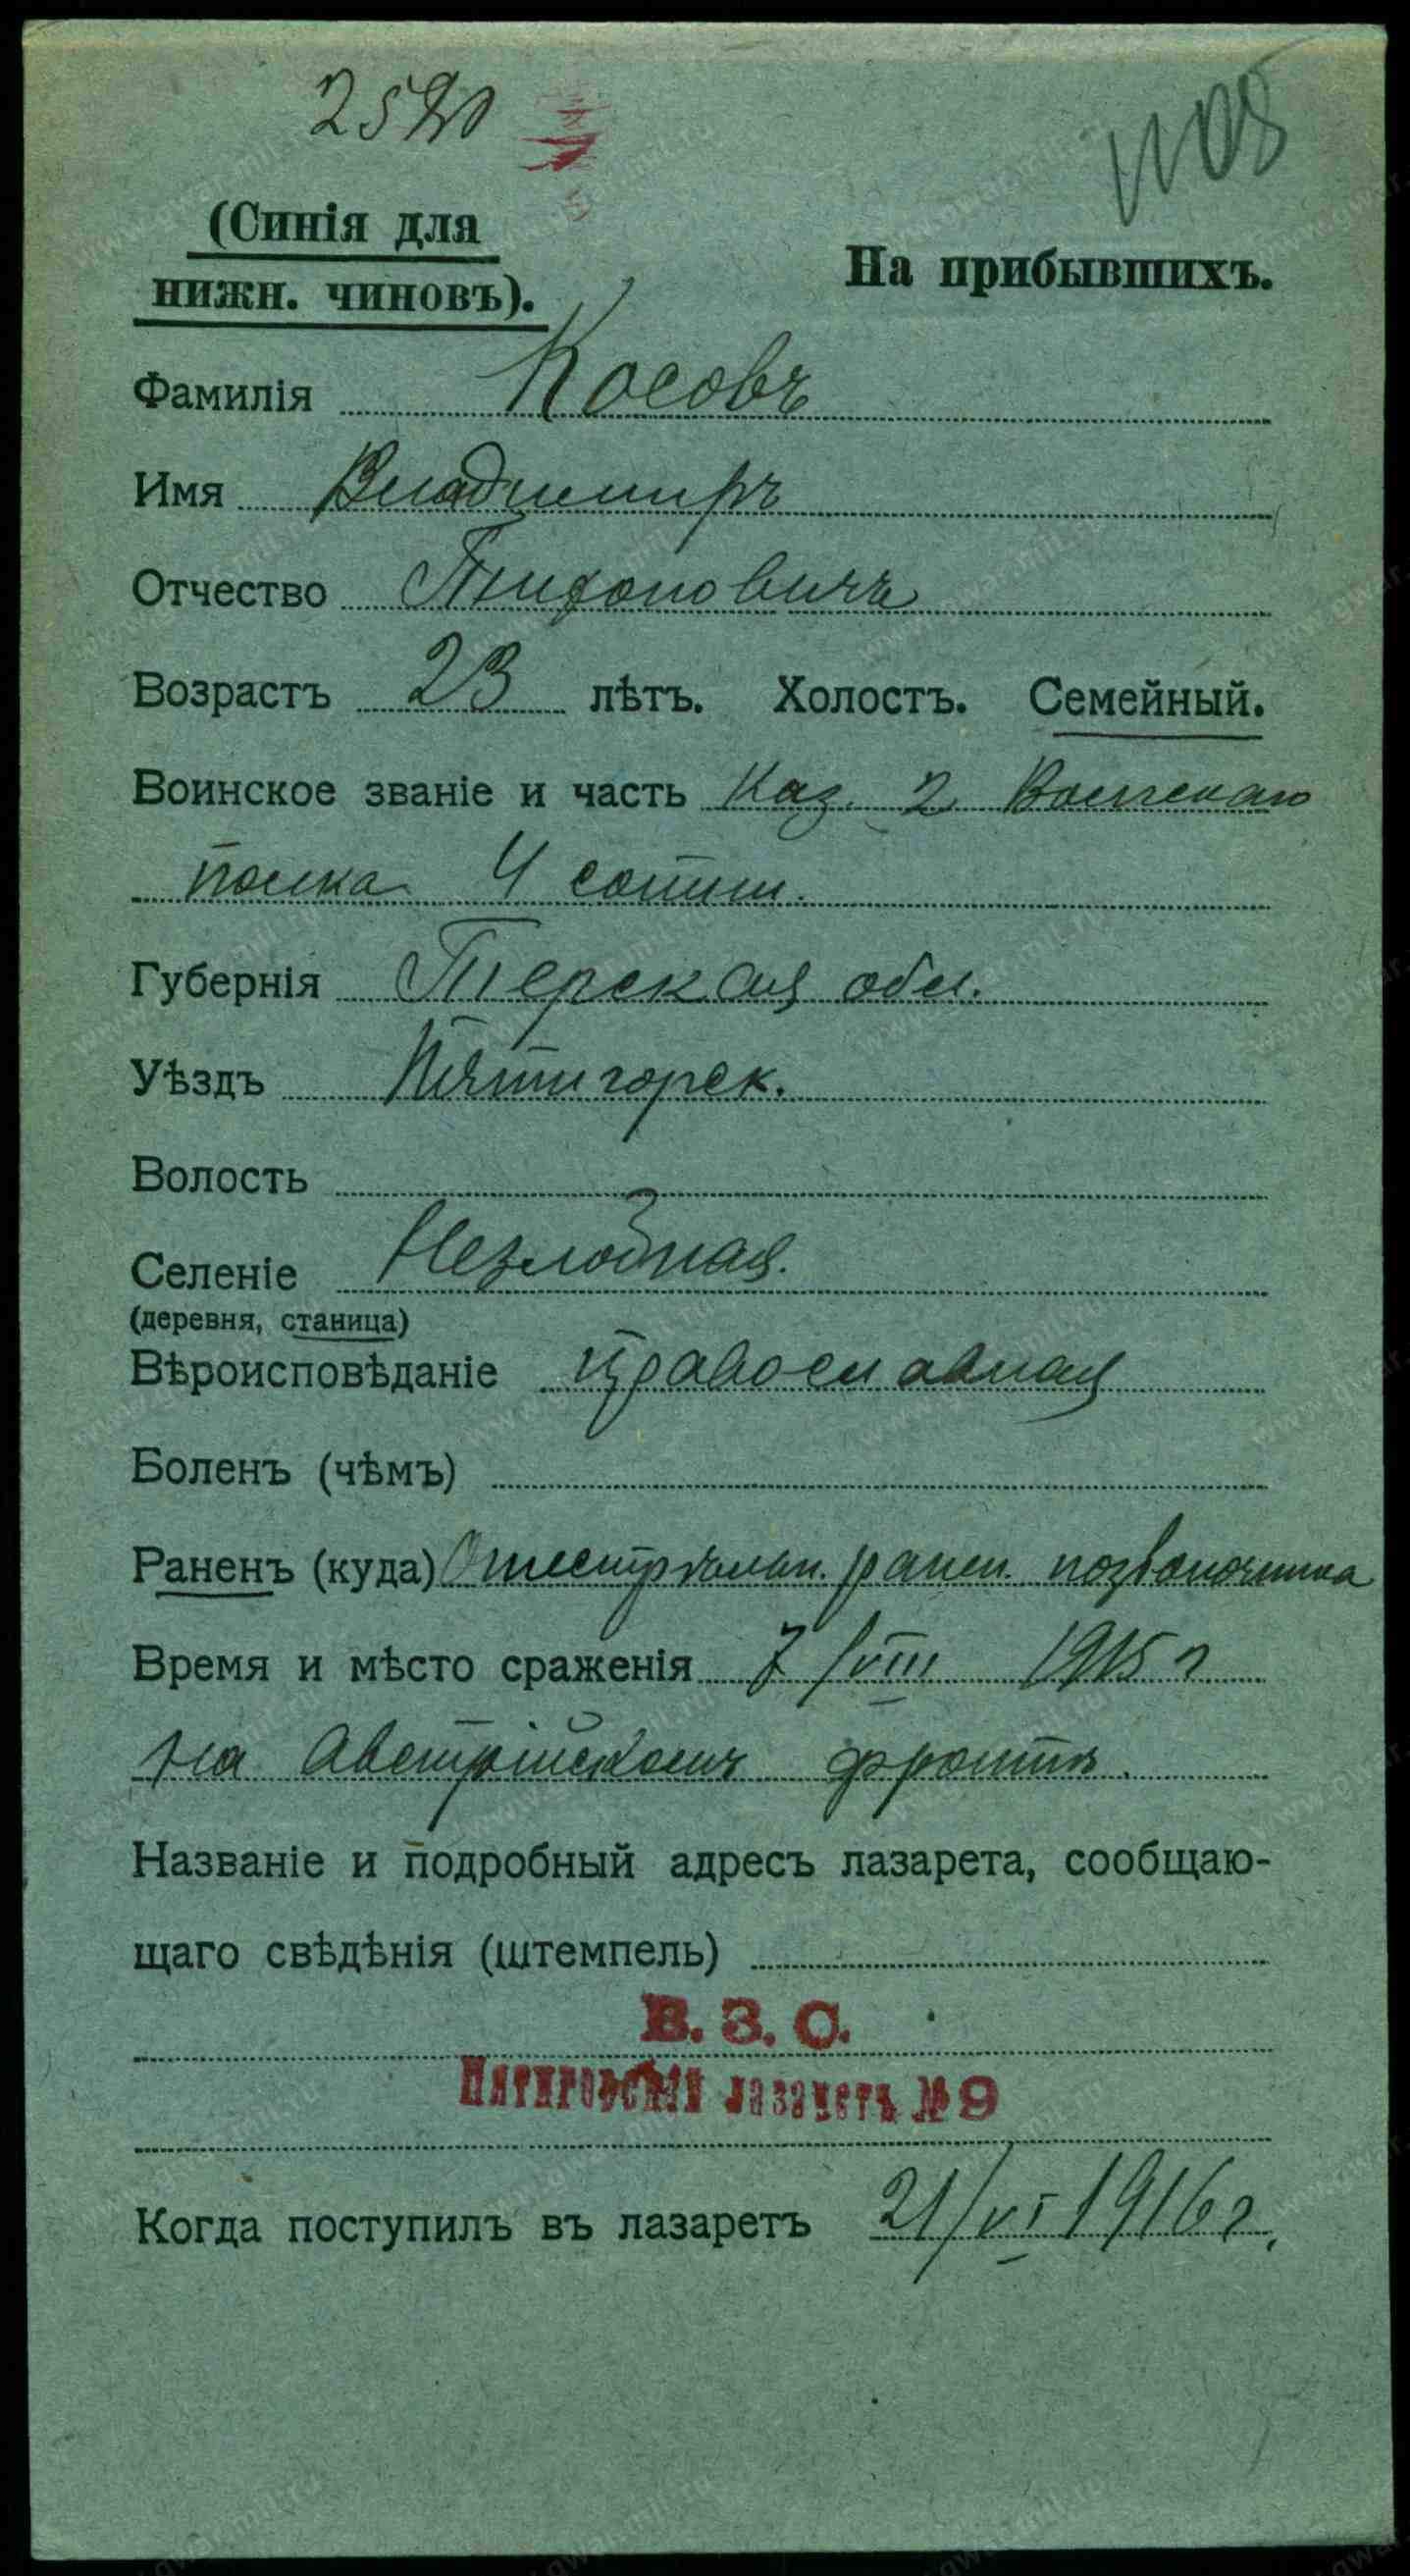 (Синія для
нижн. чиновъ).
На прибывшихъ.
Фамилія Косовъ
Имя Владимиръ
Отчество Тихоновичъ
Возрастъ 23 лѣтъ. Холостъ. Семейный.
Воинское званіе и часть Каз. 2 Волгскаго
полка 4 сотни.
Губернія Терская обл.
Уѣздъ Пятигорск.
Волость
Селеніе Незлобная.
(деревня, станица)
Вѣроисповѣданіе православная
Боленъ (чѣмъ)
Раненъ (куда) Огнестрѣльн. ранен. позвоночника
Время и мѣсто сраженія 7/VIII 1915 г
на Австрійскомъ фронтѣ.
Названіе и подробный адресъ лазарета, сообщаю-
щаго свѣдѣнія (штемпель)
В. З. С.
лазаретъ № 9
Когда поступилъ въ лазаретъ 21/VI 1916 г.